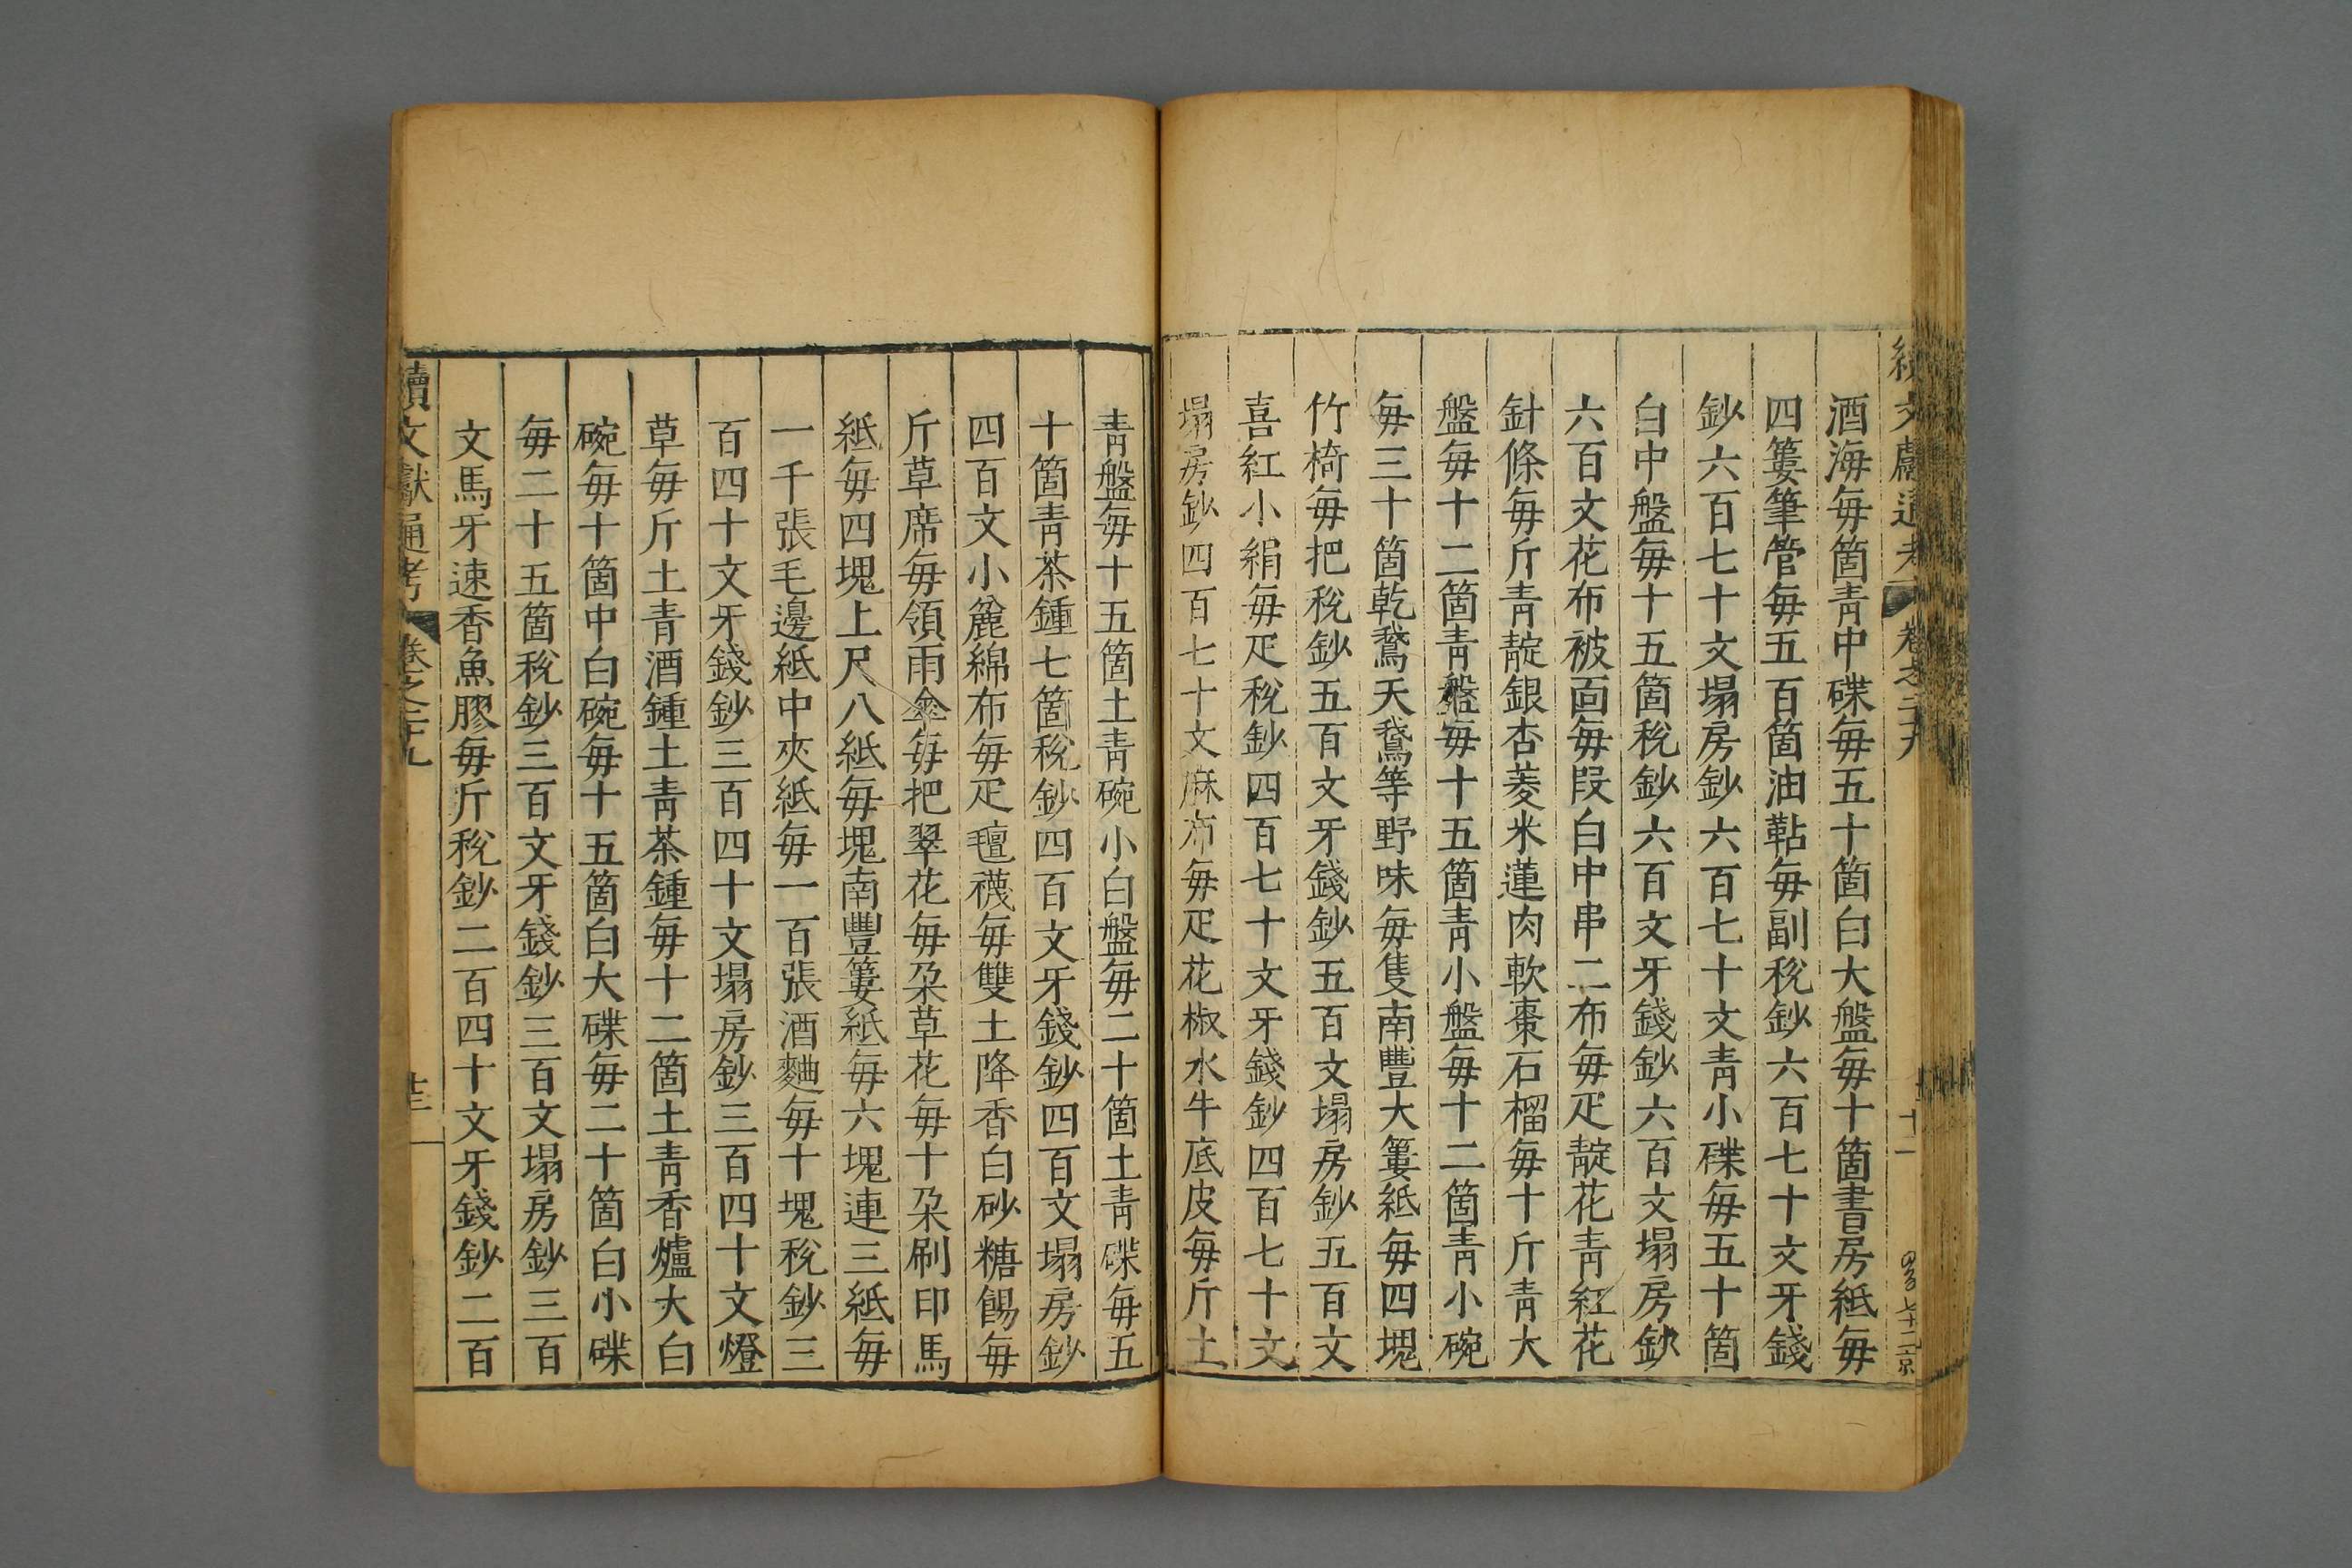 續文獻通考 卷之二十九 十二
酒海每箇青中碟每五十箇白大盤每十箇書房紙每
四簍筆管每五百箇油靴每副稅鈔六百七十文牙錢
鈔六百七十文塌房鈔六百七十文青小碟每五十箇
白中盤每十五箇稅鈔六百文牙錢鈔六百文塌房鈔
六百文花布被面每段白中串二布每疋靛花青紅花
針條每斤青靛銀杏菱米蓮肉軟棗石榴每十斤青大
盤每十二箇青盤每十五箇青小盤每十二箇青小碗
每三十箇乾鵞天鵞等野味每隻南豐大簍紙每四塊
竹椅每把稅鈔五百文牙錢鈔五百文塌房鈔五百文
喜紅小絹每疋稅鈔四百七十文牙錢鈔四百七十文
塌房鈔四百七十文麻布每疋花椒水牛底皮每斤土
青盤每十五箇土青碗小白盤每二十箇土青碟每五
十箇青茶鍾七箇稅鈔四百文牙錢鈔四百文塌房鈔
四百文小麄綿布每疋氊襪每雙土降香白砂糖餳每
斤草席每領雨傘每把翠花每朶草花每十朶刷印馬
紙每四塊上尺八紙每塊南豐簍紙每六塊連三紙每
一千張毛邊紙中夾紙每一百張酒麯每十塊稅鈔三
百四十文牙錢鈔三百四十文塌房鈔三百四十文燈
草每斤土青酒鍾土青茶鍾每十二箇土青香爐大白
碗每十箇中白碗每十五箇白大碟每二十箇白小碟
每二十五箇稅鈔三百文牙錢鈔三百文塌房鈔三百
文馬牙速香魚膠每斤稅鈔二百四十文牙錢鈔二百
續文獻通考 卷之二十九 十三